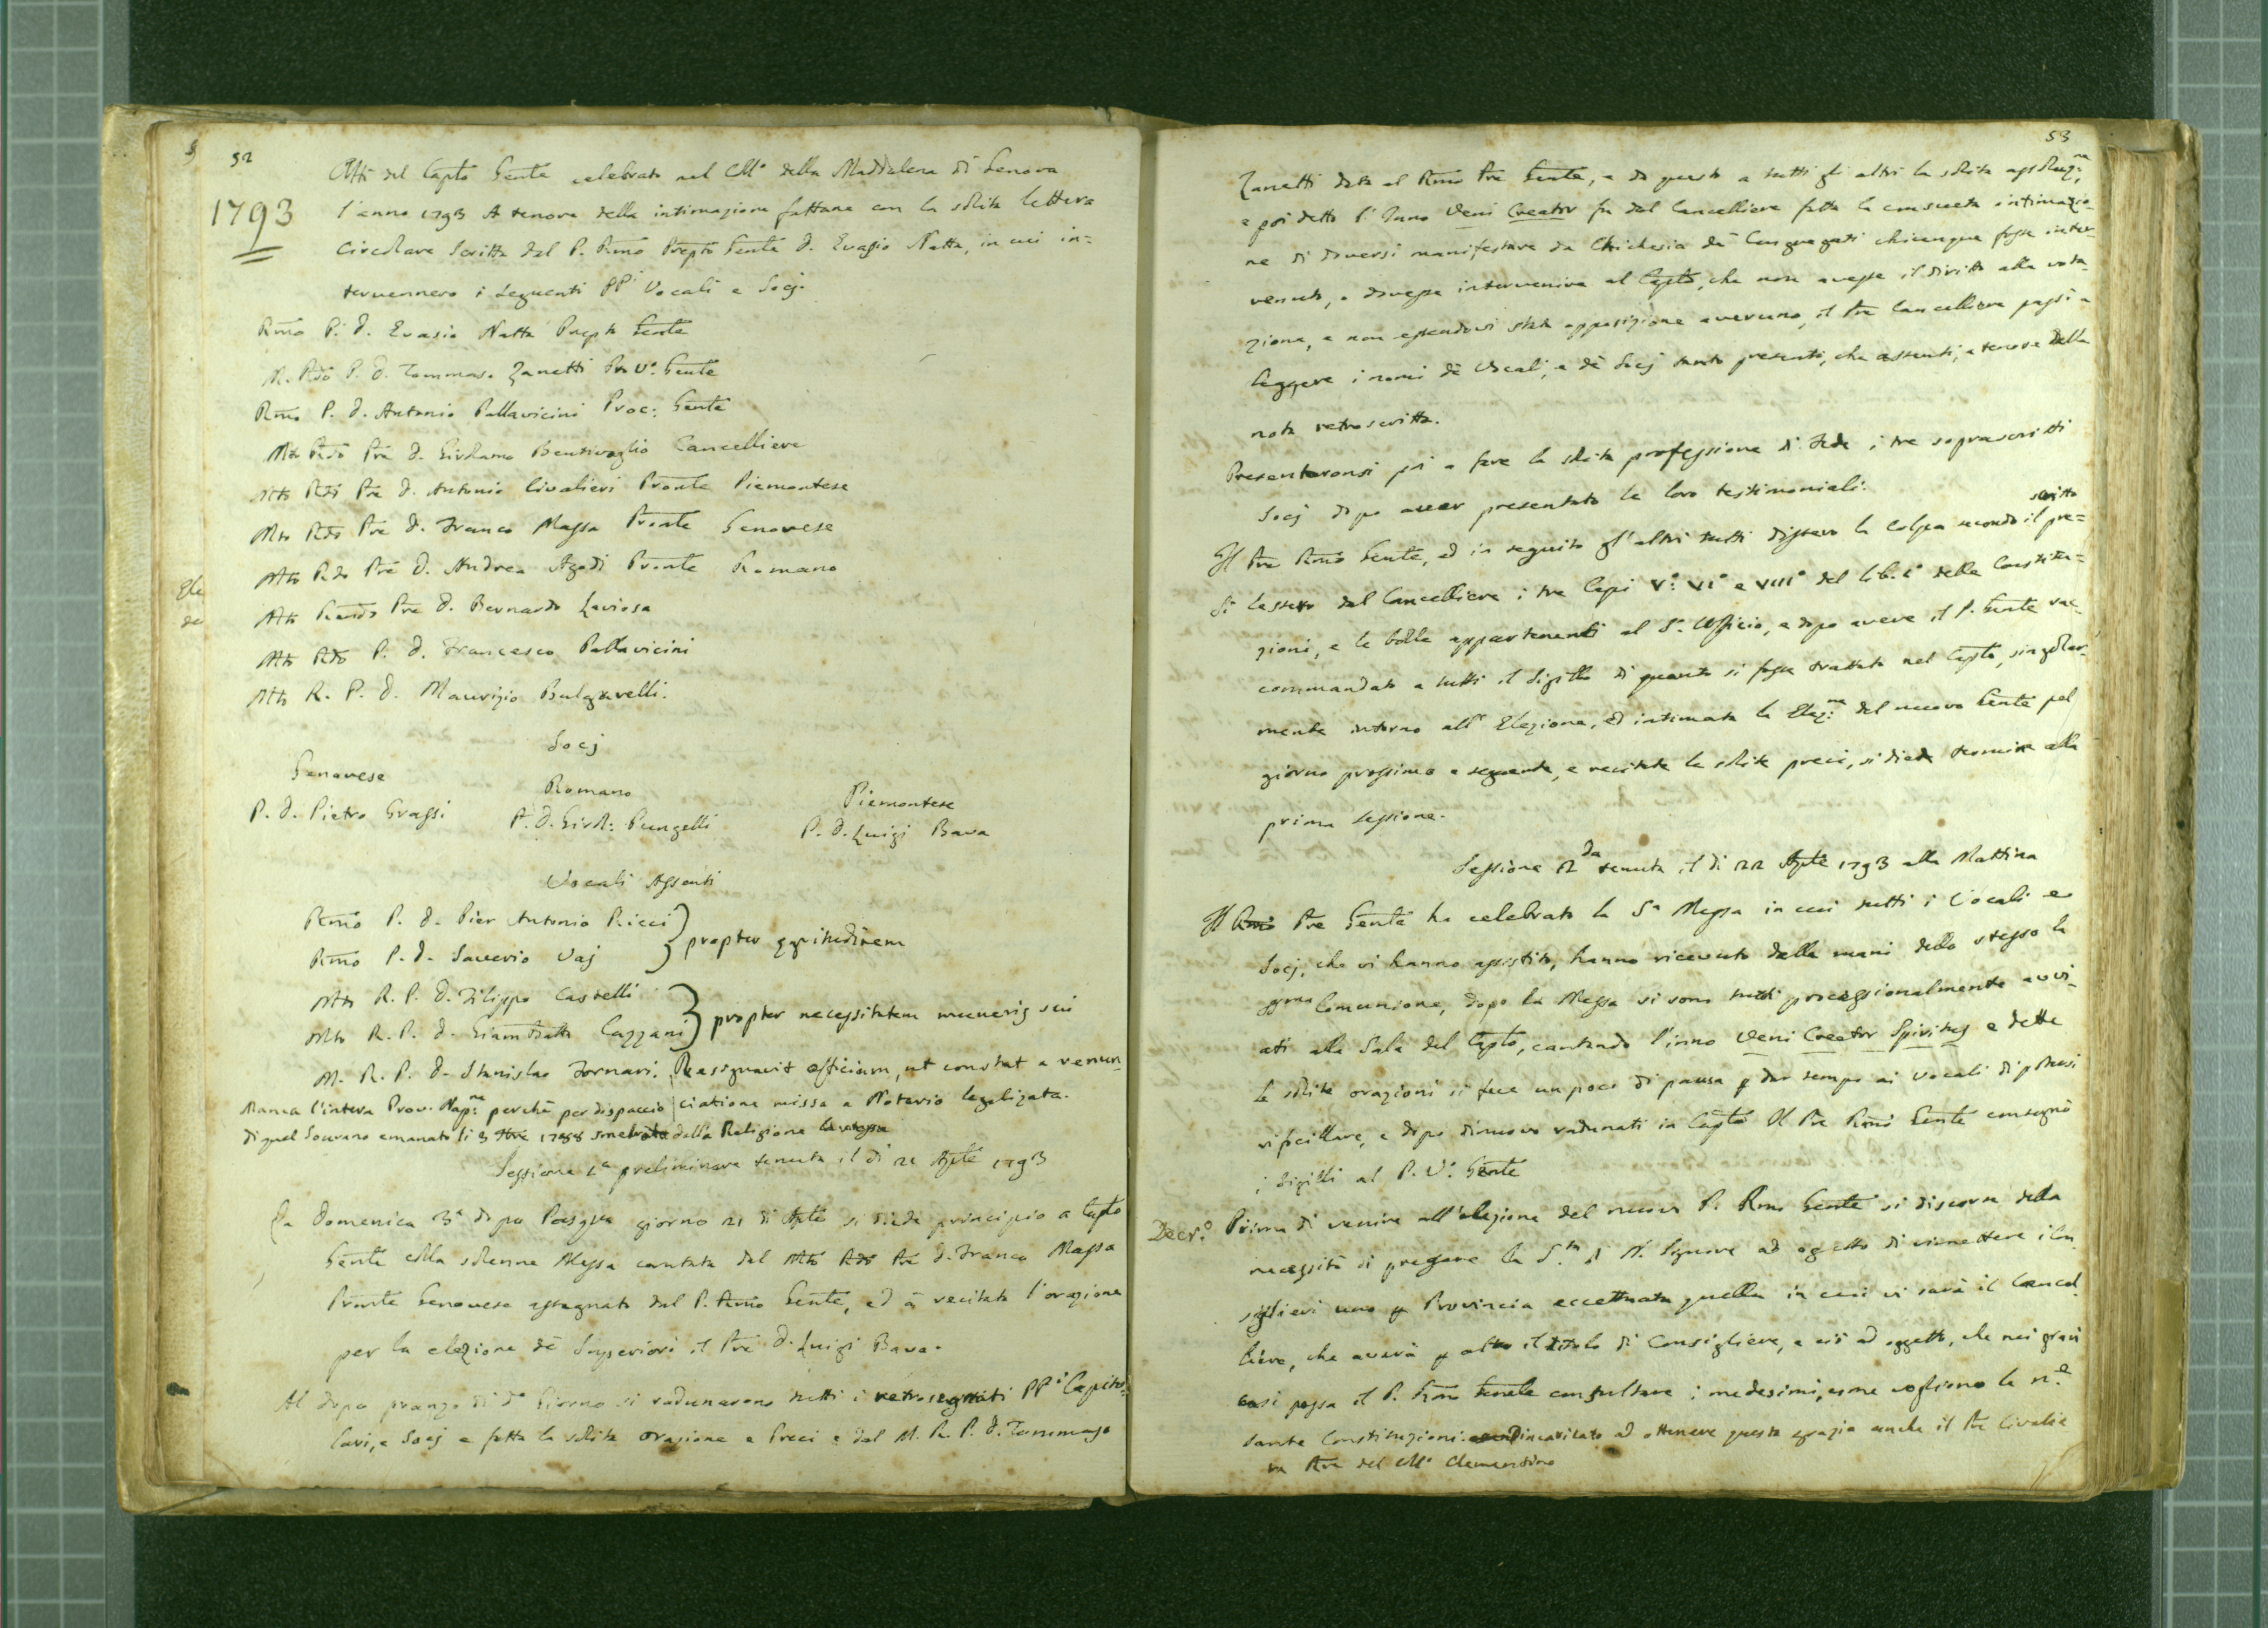 52
Atti del Capto Gente celebrato nel Coll° della Maddalena di Genova
1793
l'anno 1793 A tenore della intimazione fattane con la solita lettera
Circolare Scritta dal P. Rmo Prepto Gente D. Evasio Natta, in cui in=
tervennero i seguenti PPi Vocali e Socj.
Rmo P. D. Evasio Natta Prepto Gente
M. Rdo P. D. Tommaso Zanetti Pro V° Gente
Rmo P. D. Antonio Pallavicini Proc: Gente
Mto Rdo Pre D. Girolamo Bentivoglio Cancelliere
Mto Rdo Pre D. Antonio Civalieri Pronte Piemontese
Mto Rdo Pre D. Franco Massa Pronte Genovese
Mto Rdo Pre D. Andrea Agodi Pronte Romano
Mto Rendo Pre D. Bernardo Laviosa
Mto Rdo P. D. Francesco Pallavicini
Mto R. P. D. Maurizio Bulgarelli.
Socj
Genovese
Romano
Piemontese
P. D. Pietro Grassi
P. D. Girol: Pungelli
P. D. Luigi Bava
Vocali Assenti
Rmo P. D. Pier Antonio Ricci
Rmo P. D. Saverio Vaj
propter egritudinem
Mto R. P. D. Filippo Castelli
Mto R. P. D. Giambatta Cazzani
propter necessitatem muneris sui
M. R. P. D. Stanislao Fornari. Resignavit officium, ut constat a renun
Manca l'intera Prov. Napne perchè per dispaccio
ciatione missa a Notario legalizata.
di quel Sovrano emanato li 3 1788 smebrata dalla Religione
Sessione 1a preliminare tenuta il di 21 Aple 1793
La Domenica 3a dopo Pasqua giorno 21 di Aple si diede principio a Capto
Gente colla solenne Messa cantata dal Mto Rdo Pre D. Franco Massa
Pronte Genovese assegnato dal P. Rmo Gente, ed à recitata l'orazione
per la elezione dè Superiori il Pre D. Luigi Bava.
Al dopo pranzo di do Giorno si radunarono tutti i retrosegnati PPi Capito=
lari, e Socj e fatta la solita orazione e Preci e dal M. R. P. D. Tommaso
53
Zanetti data al Rmo Pre Gente, e da questo a tutti gli altri la solita assoluzne,
e poi detto l'Inno Veni Creator fu dal Cancelliere fatta la consueta intimazio-
ne di doversi manifestare da Chichesia dè Congregati chiunque fosse inter-
venuto, o dovesse intervenire al Capto, che non avesse il diritto alla vota-
zione, e non essendovi stata opposizione averuno, il Pre Cancelliere passò a
leggere i nomi dè Vocali, e dè Socj tanto presenti, che assenti, a tenore della
nota retroscritta.
Presentaronsi poi a fare la solita professione di Fede i tre soprascritti
Socj dopo aver presentato le loro testimoniali.
scritto
Il Pre Rmo Gente, ed in seguito gl'altri tutti dissero la colpa secondo il pre=
Si lessero dal Cancelliere i tre Capi V° VI° e VIII° del lib. 1° delle Constitu=
zioni, e le bolle appartenenti al S. Officio, e dopo avere il P. Gente rac-
commandato a tutti il Sigillo di quanto si fosse trattato nel Capto, singolar-
mente intorno all' Elezione, ed intimata la Elezne del nuovo Gente pel
giorno prossimo e seguente, e recitate le solite preci, si diede termine alla
prima sessione.
Sessione 2da tenuta il di 22 Aple 1793 alla Mattina
Il Rmo Pre Gente ha celebrato la Sa Messa in cui tutti i Vocali e
Socj, che vi hanno assistito, hanno ricevuto dalle mani dello stesso la
Comunione, dopo la Messa si sono tutti processionalmente avvi-
ati alla Sala del Capto, cantando l'inno Veni Creator Spiritus e dette
le solite orazioni si fece un poco di pausa p dar tempo ai Vocali di potersi
vificillare, e dopo dinuovo radunati in Capto Il Pre Rmo Gente consegnò
i Sigilli al P. V° Gente
Decr°
Prima di venire all'elezione del nuovo P. Rmo Gente si discorse della
necessità di pregare la S.tà di N. Signore ad ogetto di rimettere i Con
siglieri uno p Provincia eccettuata quella in cui vi sarà il Cancel
liere, che averà p altro il titolo di Consigliere, e ciò ad oggetto, che nei gravi
casi possa il P. Rmo Gente consultare i medesimi, come vogliono le ne
sante Constituzioni. incaricato ad ottenere questa grazia anche il Pre Civalie
ri Rre del Coll° Clementino